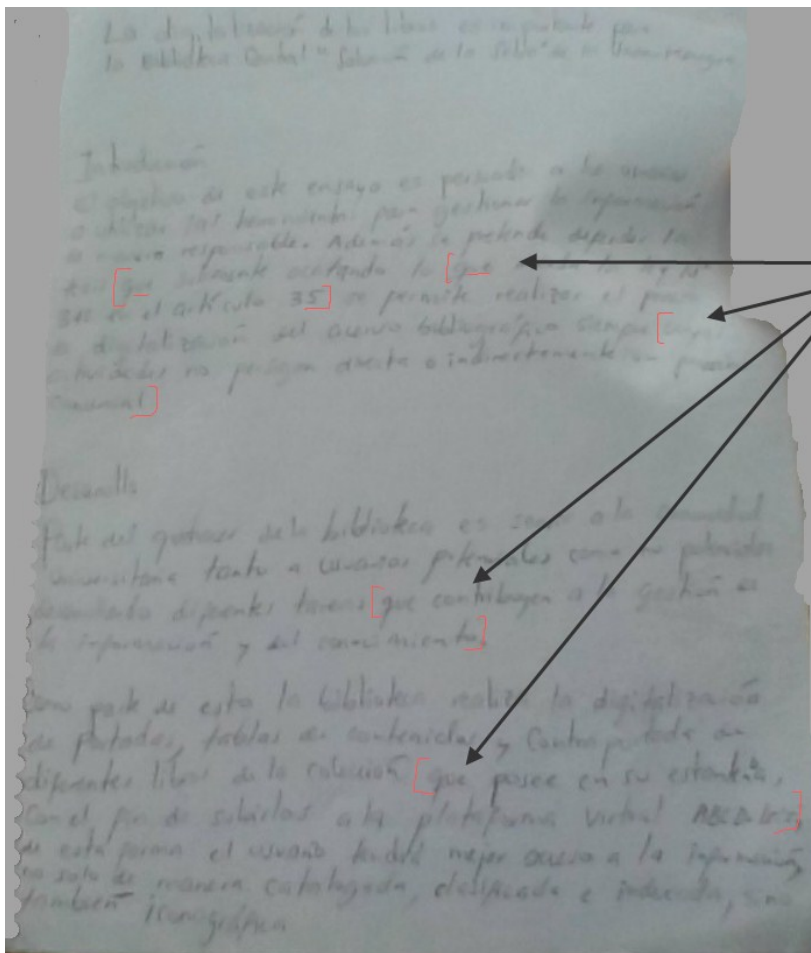 La digitalización de los libros es importante para
la Biblioteca Central "Salomón de la Selva" de la
Introducción
El objetivo de este ensayo es persuadir a los usuarios
a utilizar las herramientas para gestionar la información
de manera responsable. Además se pretende defender la
tesis que solamente acatando lo que manda la ley Nº
312 en el artículo 35 se permite realizar el proceso
de digitalización del acervo bibliográfico siempre
actividades no persigan directa o indirectamente un
comercial
Desarrollo
Parte del quehacer de la biblioteca es a la comunidad
universitaria tanto a usuarios potenciales como no potenciales
desarrollando diferentes tareas que contribuyen a la gestión de
la información y del conocimiento.
Como parte de esto la biblioteca realiza la digitalización
de Portadas, tablas de contenidos y Contraportada de
diferentes libros de la colección que posee en su estantería.
Con el fin de subirlos a la plataforma virtual
de esta forma el usuario tendrá mejor acceso a la información,
no solo de manera catalogada, clasificada e indexada, sino
también iconográfica